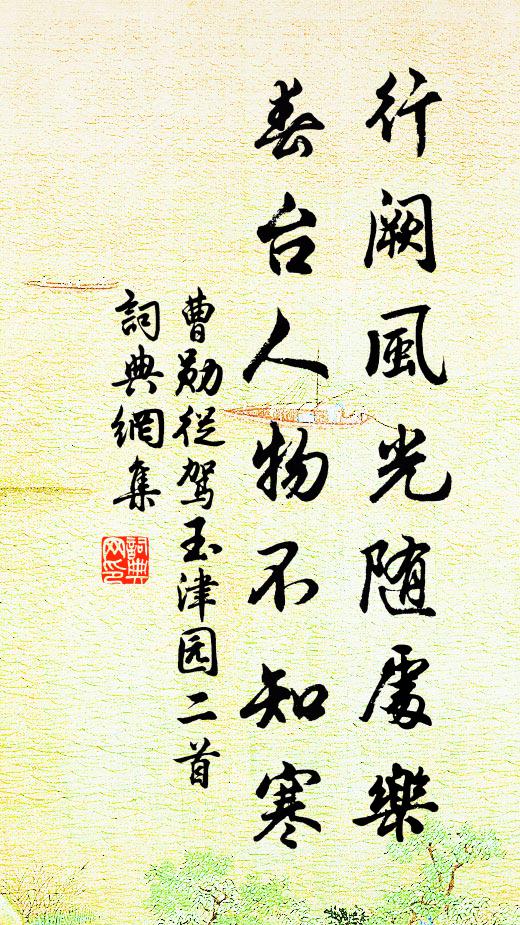 行阙風光随處樂
春台人物不知寒
曹勋從驾玉津园二首
詞典網集
詞典
网印